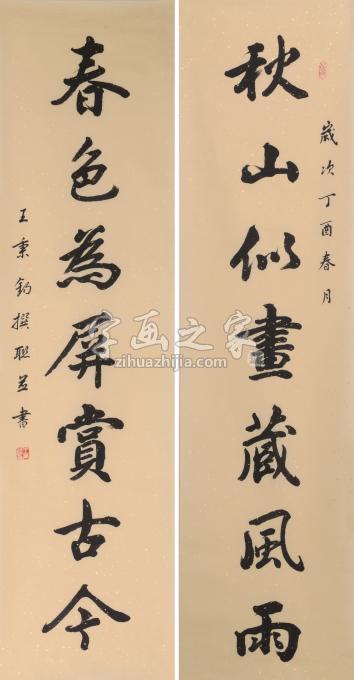 歲次丁酉春月
秋山似畫藏風雨
春色為屏賞古今
王秉鈞撰聯並書
字画之家
zihuazhijia.com